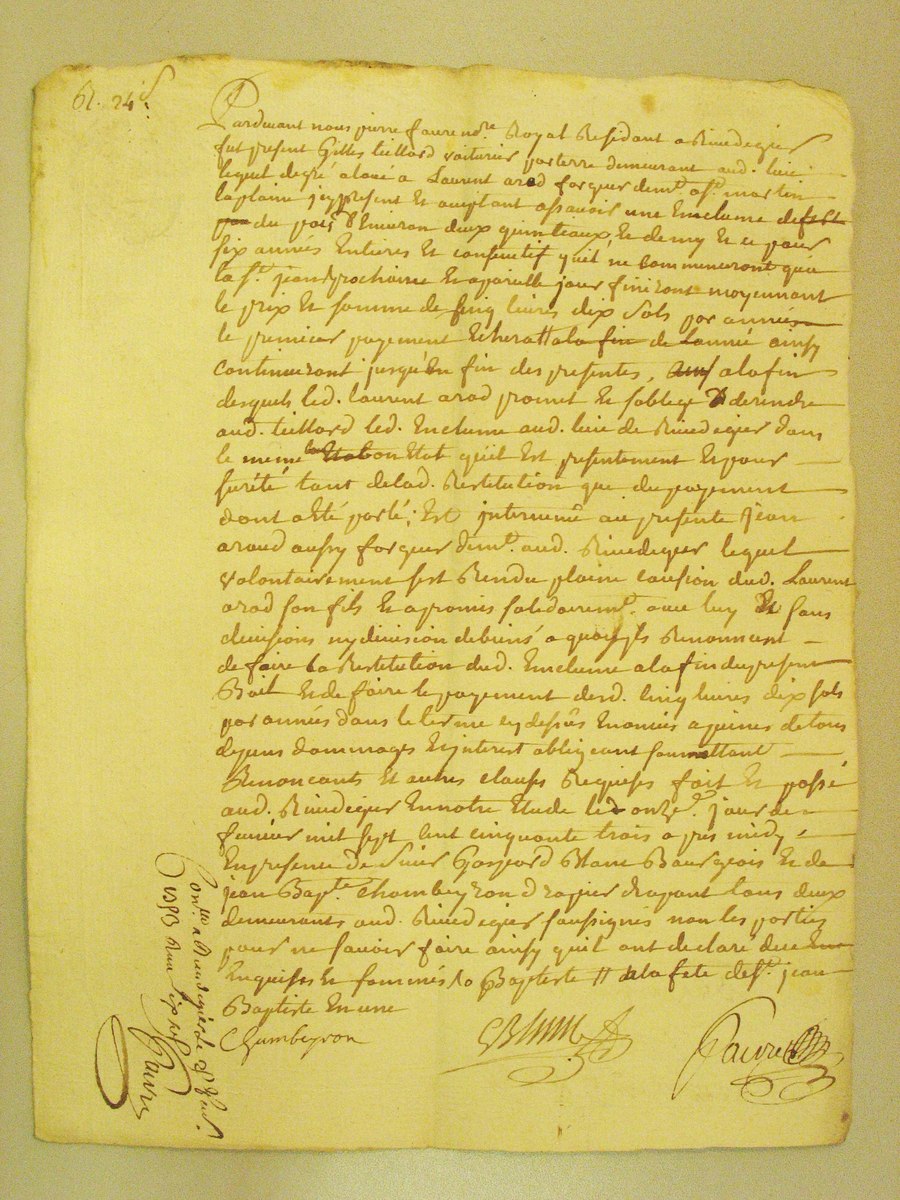 61. 24 d.
Pardevant nous pierre faure no.re Royal Residant a Rivedegier
fut present Gilles tiellard voiturier par terre demeurant aud. lieu
lequel de gré aloue a Laurent arad forgeur dem.t a s.t martin
laplaine jcy present Et aceptant assavoir une Enclume
du poids d'Environ deux quinteaux Et demy Et ce pour
six années Entieres Et consecutif qui ne commenceront qu'a
la s.t jean prochaine Et a pareille jour finiront moyennant
le prix Et somme de cinq livres dix sols par année
le premier payement Echera a la fin de L'année ainsy
continueront jusqu'En fin des presentes, a la fin
desquels led. Laurent arad promet Et soblege de rendre
aud. tiellard led. Enclume aud. lieu de Rivedegier dans
le meme Etat quil Est presentement Et pour
sureté tant de lad. Restitution que du payement
dont a Eté parlé, Est intervenu au presente Jean
araud aussy forgeur dem.t aud. Rivedegier lequel
volontairement s'est Rendu plaine caution dud. Laurent
arad son fils Et a promis solidairem.t avec luy Et sans
divisions ny division de biens a quoy ils Renoncent
de faire la Restitution dud. Enclume a la fin du present
Bail Et de faire le payement desd. cinq livres dix sols
par années dans le terme cy dessus Enoncés a peines de tous
depens dommages Et interest obligeant soumettant
Renonçants Et autres clauses Requises fait Et passé
aud. Rivedegier En notre Etude led onze.e jour de
fevrier mil sept cent cinquante trois apres midy
En presence de Sieur Gaspard Blanc Bourgeois Et de
jean Bap.te Chambeyron drapier drapant tous deux
demeurants aud. Rivedegier soussignés non les parties
pour ne savoir faire ainsy quil ont declaré de ce
Enquises Et sommés Baptiste // a la fete de s.t jean
Baptiste En une
Chambeyron
Blanc
Faure
Con.llé a Rivedegier le
1753 Reçu six sols
Faure